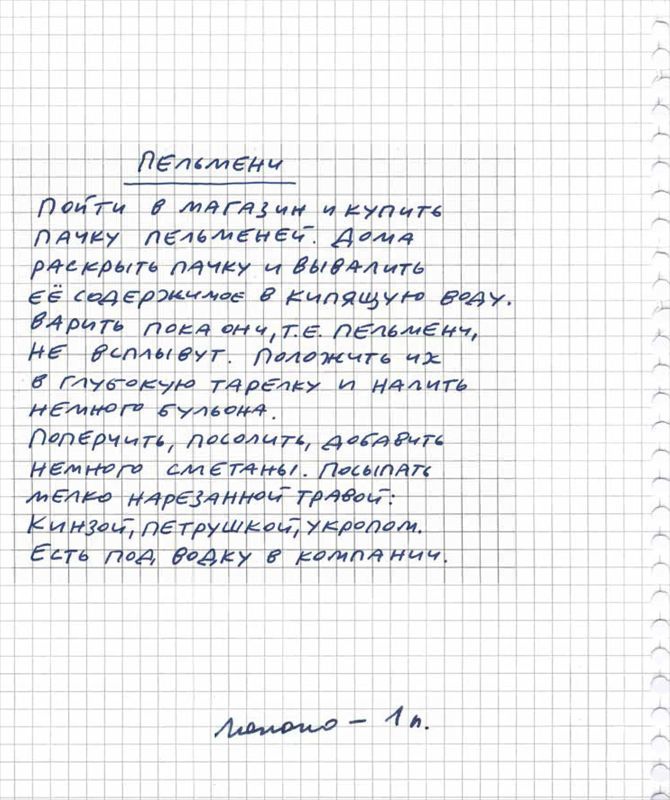 Пельмени
Пойти в магазин и купить
пачку пельменей. Дома
раскрыть пачку и вывалить
её содержимое в кипящую воду.
Варить пока они, т.е. пельмени,
не всплывут. Положить их
в глубокую тарелку и налить
немного бульона.
Поперчить, посолить, добавить
немного сметаны. Посыпать
мелко нарезанной травой:
кинзой, петрушкой, укропом.
Есть под водку в компании.
Молоко – 1 п.